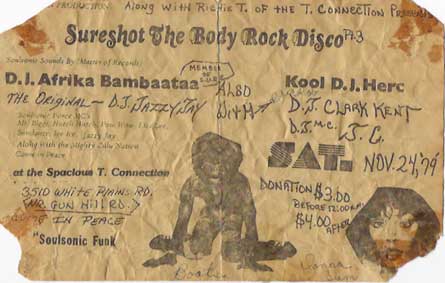 PRODUCTION: Along With Richie T. of the T. Connection Presents
Sureshot The Body Rock Disco Pt.3
Soulsonic Sounds By (Master of Records)
MEMBER OF
D.J. Afrika Bambaataa
ALSO WITH
Kool D.J. Herc
THE ORIGINAL - D.J. JAZZY JAY
D.J. CLARK KENT
Soulsonic Force MCS
D.J. M.C. J.C.
Mr. Biggs, Hutch Hutch, Pow Wow,
Sundance, Ice Ice, Jazzy Jay
Along with the Mighty Zulu Nation
Come in Peace
SAT. NOV. 24, '79
at the Spacious T. Connection
3510 WHITE PLAINS RD.
(NR. GUN HILL RD.)
IN PEACE
DONATION $3.00
BEFORE 12:00 A.M.
$4.00 AFTER
"Soulsonic Funk